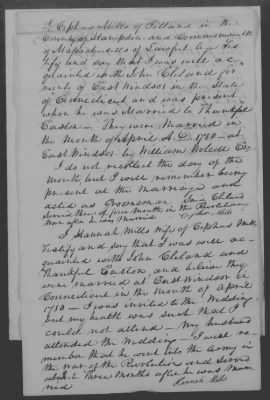 I Ciphas Mills of Tolland in the
County of Hampden and Commonwealth
of Massachusetts of Lawful Age Tes
tify and say that I was well ac-
quainted with John Cleland for
merly of East Windsor in the State
of Connecticut and was present
when he was Married to Thankful
Easton - They were Married in
the Month of April A.D. 1780 - at
East Windsor by William Wolcott Esq
I do not recollect the day of the
month, but I well remember being
present at the Marriage and
acted as Groomsman
in the Revolutionary
War after he was Married
I Hannah Mills Wife of Ciphas Mills
Testify and say that I was well ac-
quainted with John Cleland and
Thankful Easton and believe they
were married at East Windsor in
Connecticut in the Month of April
1780 - I was invited to the Wedding
but my health was such that I
could not attend - My husband
attended the Wedding - I well re-
member that he went into the Army in
the War of the Revolution and Served
about Three Months after he was Mar
ried
Mills